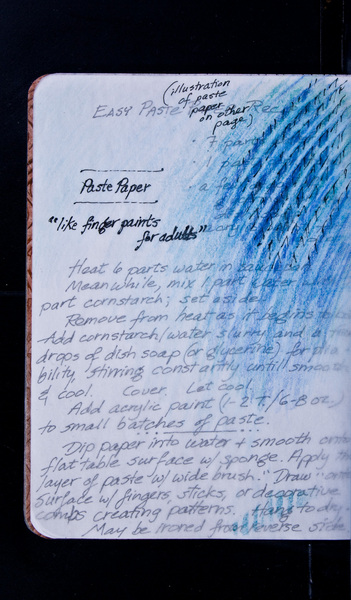 (illustration
of paste
paper
on other
page)
EASY PASTE
7 par
Paste Paper
a f
"like finger paints
for adults"
Heat 6 parts water in
Meanwhile, mix 1 part water
part cornstarch; set aside.
Remove from heat as it begins to
Add cornstarch/water slurry and a
drops of dish soap (or glycerine) for
bility, stirring constantly until smooth
& cool. Cover. Let cool.
Add acrylic paint (1-2 T./6-8 oz.)
to small batches of paste.
Dip paper into water + smooth
flat table surface w/ sponge. Apply
layer of paste w/ wide brush. "Draw"
surface w/ fingers, sticks, or decorative
combs creating patterns. Hang to dry.
May be ironed from reverse side.